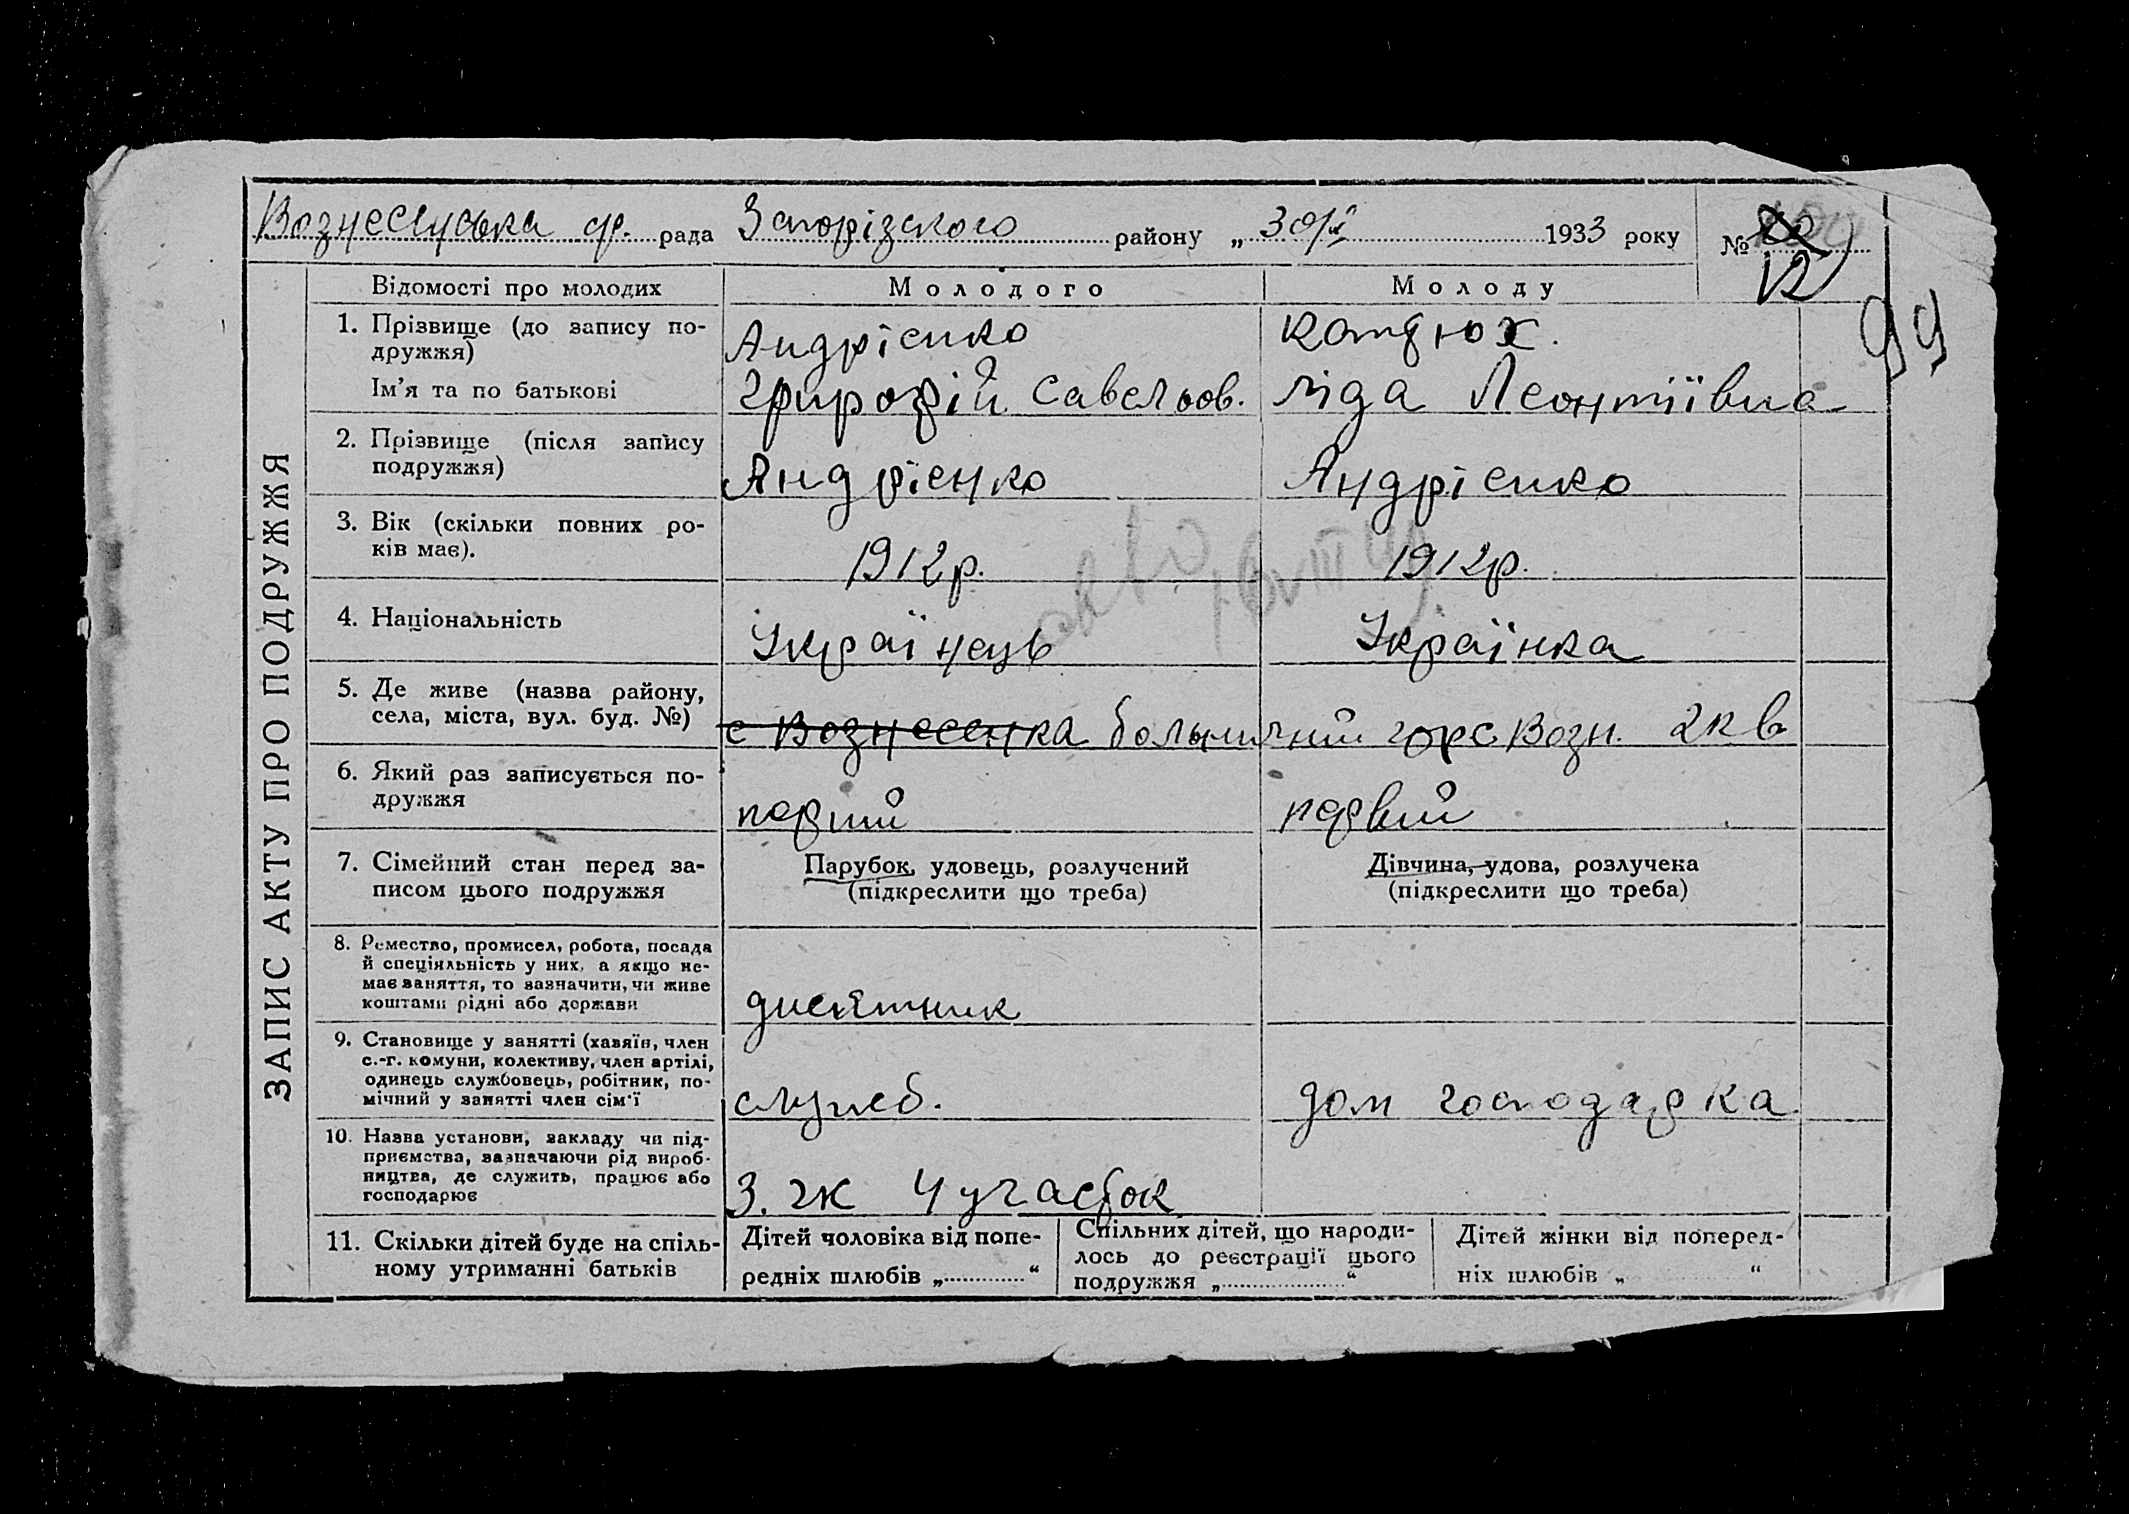 Вознесенська ср. рада Запорізского району „ 30/X 1933 року №
12
99
ЗАПИС АКТУ ПРО ПОДРУЖЖЯ
Відомості про молодих Молодого Молоду
1. Прізвище (до запису по-
дружжя)
Андрієнко Каптюх.
Ім'я та по батькові
Савельов. Ліда Леонтіївна
2. Прізвище (після запису
подружжя)
Андрієнко Андрієнко
3. Вік (скільки повних ро-
ків має).
1912р. 1912р.
4. Національність
Українець Українка
5. Де живе (назва району,
села, міста, вул. буд. №)
с Вознесенка Возн. 2 кв
6. Який раз записується по-
дружжя
перший первий
7. Сімейний стан перед за-
писом цього подружжя
Парубок, удовець, розлучений
(підкреслити що треба)
Дівчина, удова, розлучена
(підкреслити що треба)
8. Ремество, промисел, робота, посада
й спеціяльність у них, а якщо не-
має заняття, то зазначити, чи живе
коштами рідні або держави
дисятник
9. Становище у занятті (хазяїн, член
с.-г. комуни, колективу, член артілі,
одинець службовець, робітник, по-
мічний у занятті член сім'ї
служб. дом господарка
10. Назва установи, закладу чи під-
приємства, зазначаючи рід вироб-
ництва, де служить, працює або
господарює
З. жк 4 участок
11. Скільки дітей буде на спіль-
ному утриманні батьків
Дітей чоловіка від попе-
редніх шлюбів „ “
Спільних дітей, що народи-
лось до реєстрації цього
подружжя „ “
Дітей жінки від поперед-
ніх шлюбів „ “